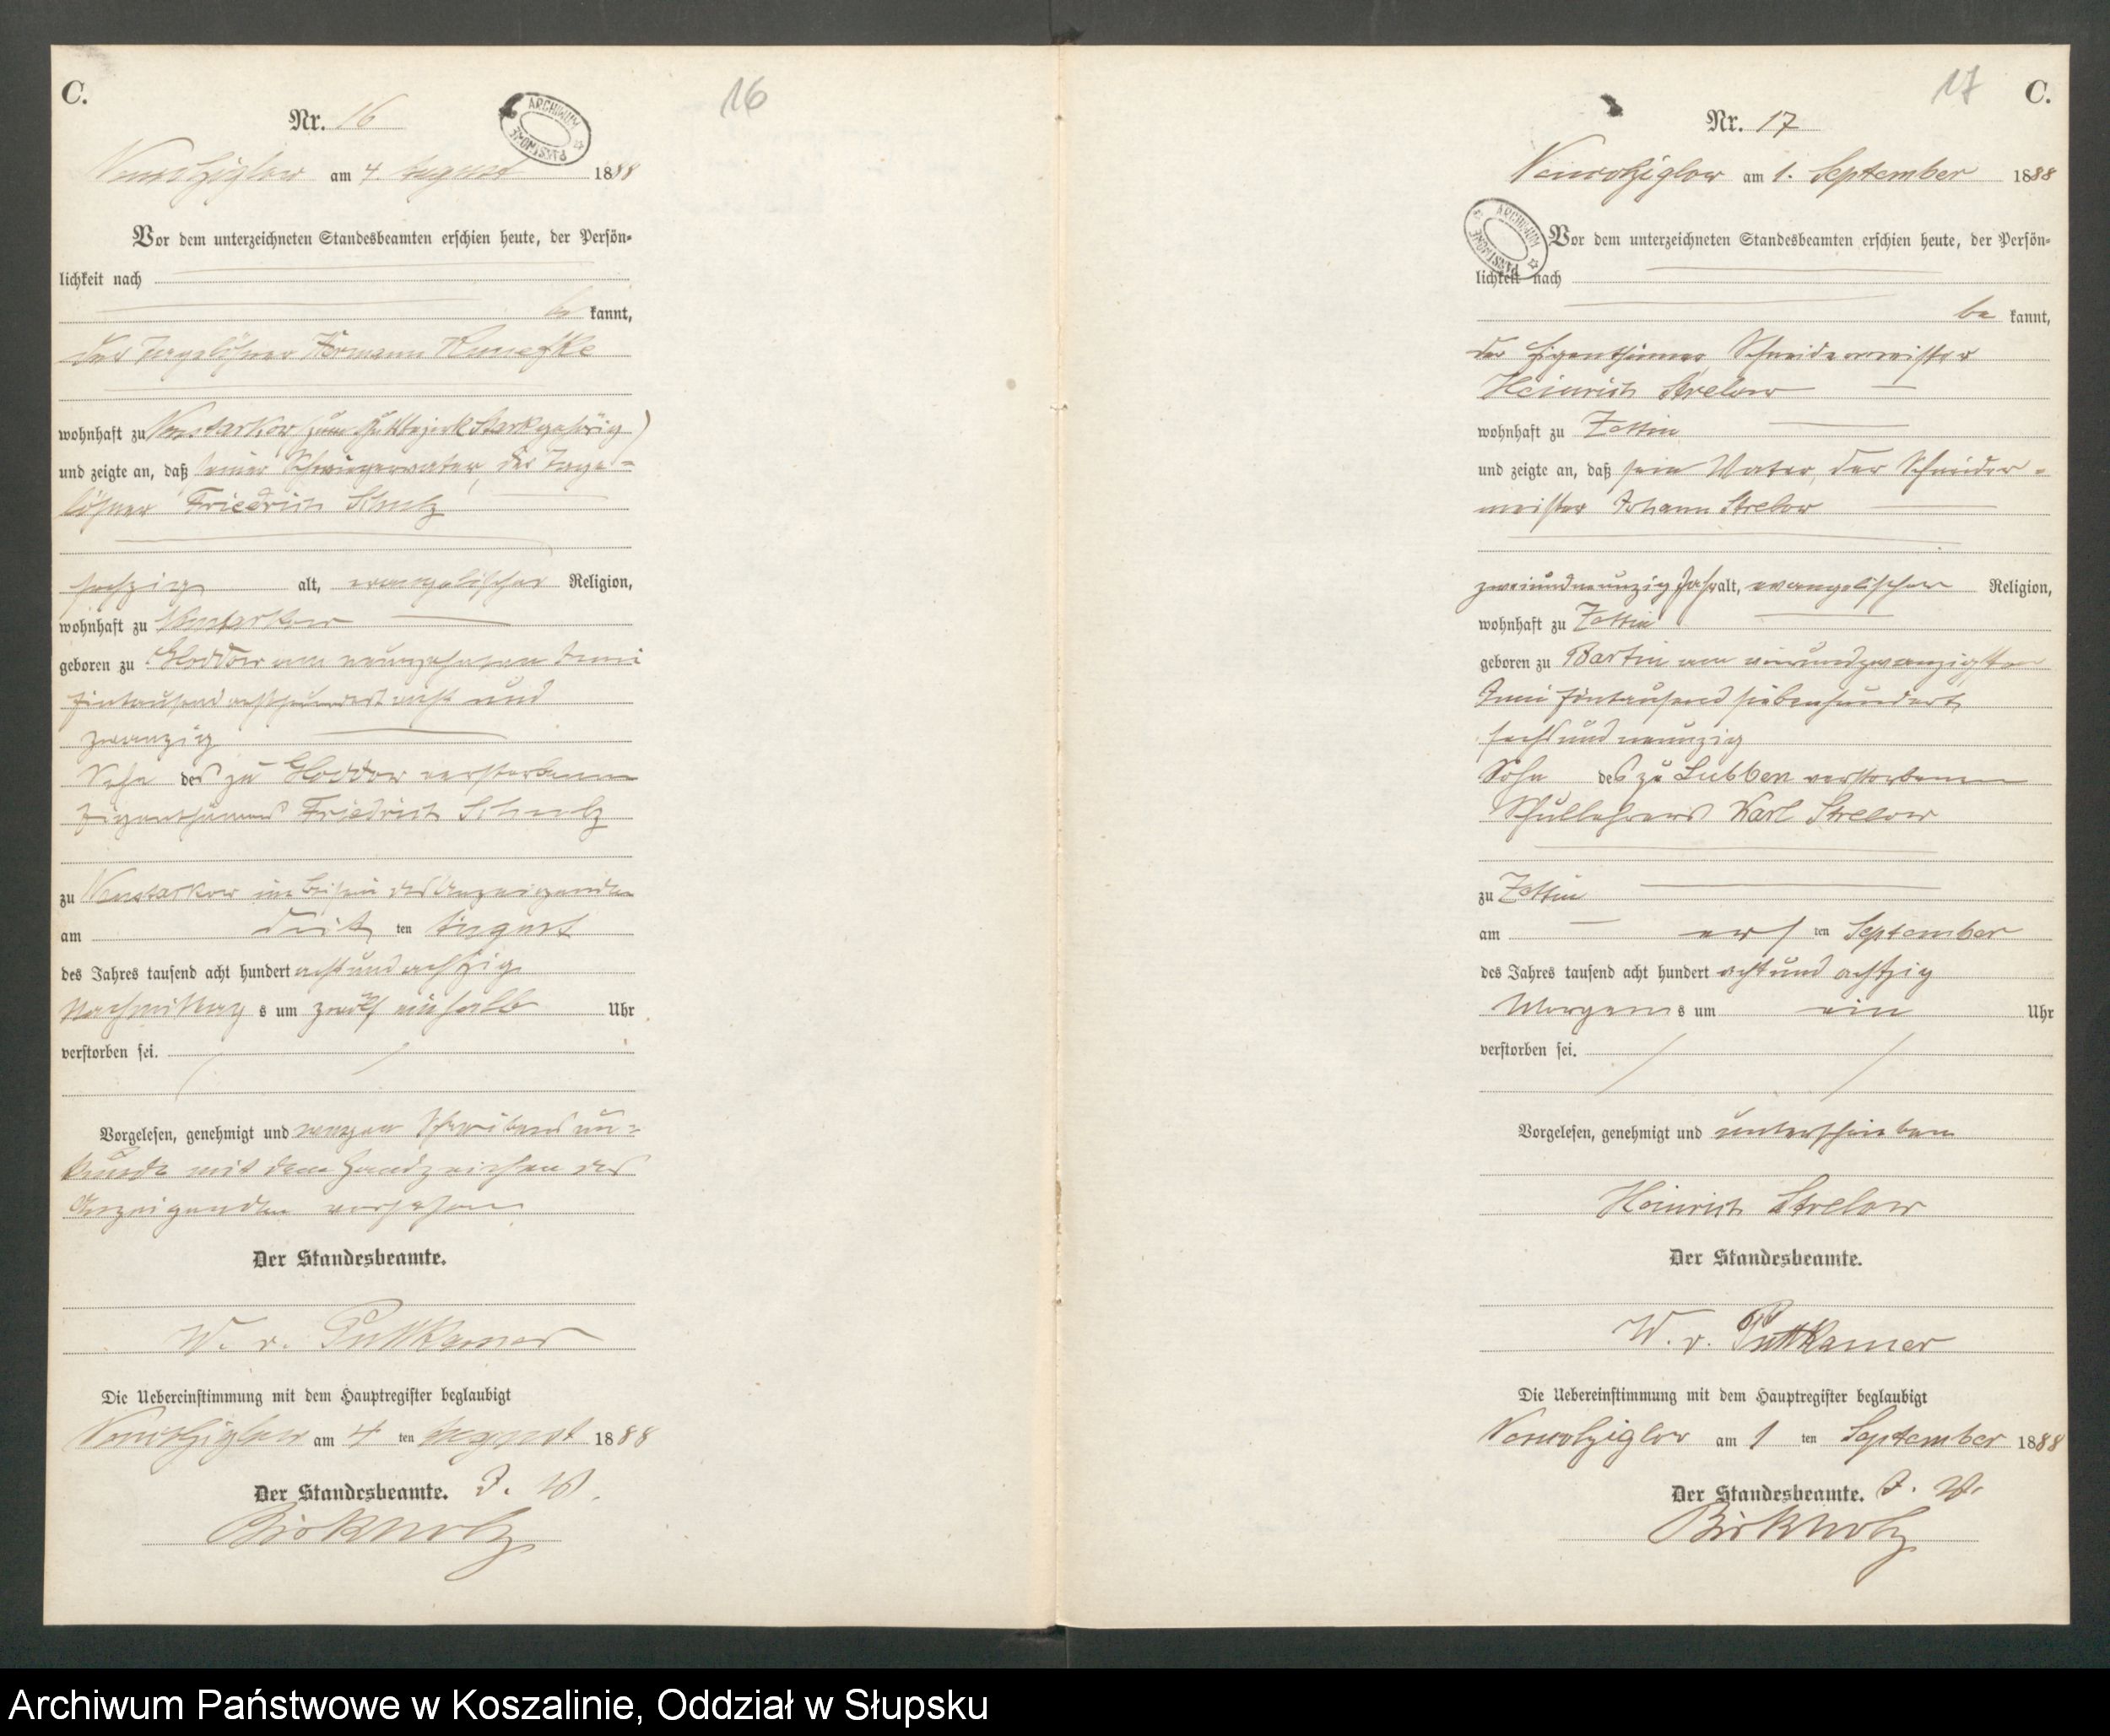 C.
16
Nr. 16
ARCHIWUM PAŃSTWOWE
am 4. August 1888
Vor dem unterzeichneten Standesbeamten erschien heute, der Persön-
lichkeit nach
be kannt,
der Tagelöhner Hermann
wohnhaft zu Neustarkow (zum Gutsbezirk Stark gehörig)
und zeigte an, daß seiner Schwiegervater, der Tage-
löhner Friedrich Schulz
sechzig alt, evangelischer Religion,
wohnhaft zu Neustarkow
geboren zu Gloddow am neunzehnten Juni
Eintausend achthundert acht und
zwanzig
Sohn des zu Gloddow verstorbenen
Eigenthümers Friedrich Schulz
zu Neustarkow im Beisein des Anzeigenden
am dritten August
des Jahres tausend acht hundert acht und achtzig
Nachmittag s um zwölf einhalb Uhr
verstorben sei.
Vorgelesen, genehmigt und wegen Schreibens un-
kunde mit dem Handzeichen des
Anzeigenden versehen
Der Standesbeamte.
W. v. Puttkamer
Die Uebereinstimmung mit dem Hauptregister beglaubigt
am 4 ten August 1888
Der Standesbeamte. J. V.
Birkholz
17
C.
Nr. 17
am 1. September 1888
ARCHIWUM PAŃSTWOWE
Vor dem unterzeichneten Standesbeamten erschien heute, der Persön-
lichkeit nach
be kannt,
der Eigenthümer Schneidermeister
Heinrich Strelow
wohnhaft zu Zettin
und zeigte an, daß sein Vater, der Schneider-
meister Johann Strelow
zweiundneunzig Jahr alt, evangelischer Religion,
wohnhaft zu Zettin
geboren zu Bartin am vierundzwanzigsten
Juni Eintausend siebenhundert
sechs und neunzig
Sohn des zu Lubben verstorbenen
Schullehrers Karl Strelow
zu Zettin
am ersten September
des Jahres tausend acht hundert acht und achtzig
Morgens um ein Uhr
verstorben sei.
Vorgelesen, genehmigt und unterschrieben
Heinrich Strelow
Der Standesbeamte.
W. v. Puttkamer
Die Uebereinstimmung mit dem Hauptregister beglaubigt
am 1 ten September 1888
Der Standesbeamte. J. V.
Birkholz
Archiwum Państwowe w Koszalinie, Oddział w Słupsku